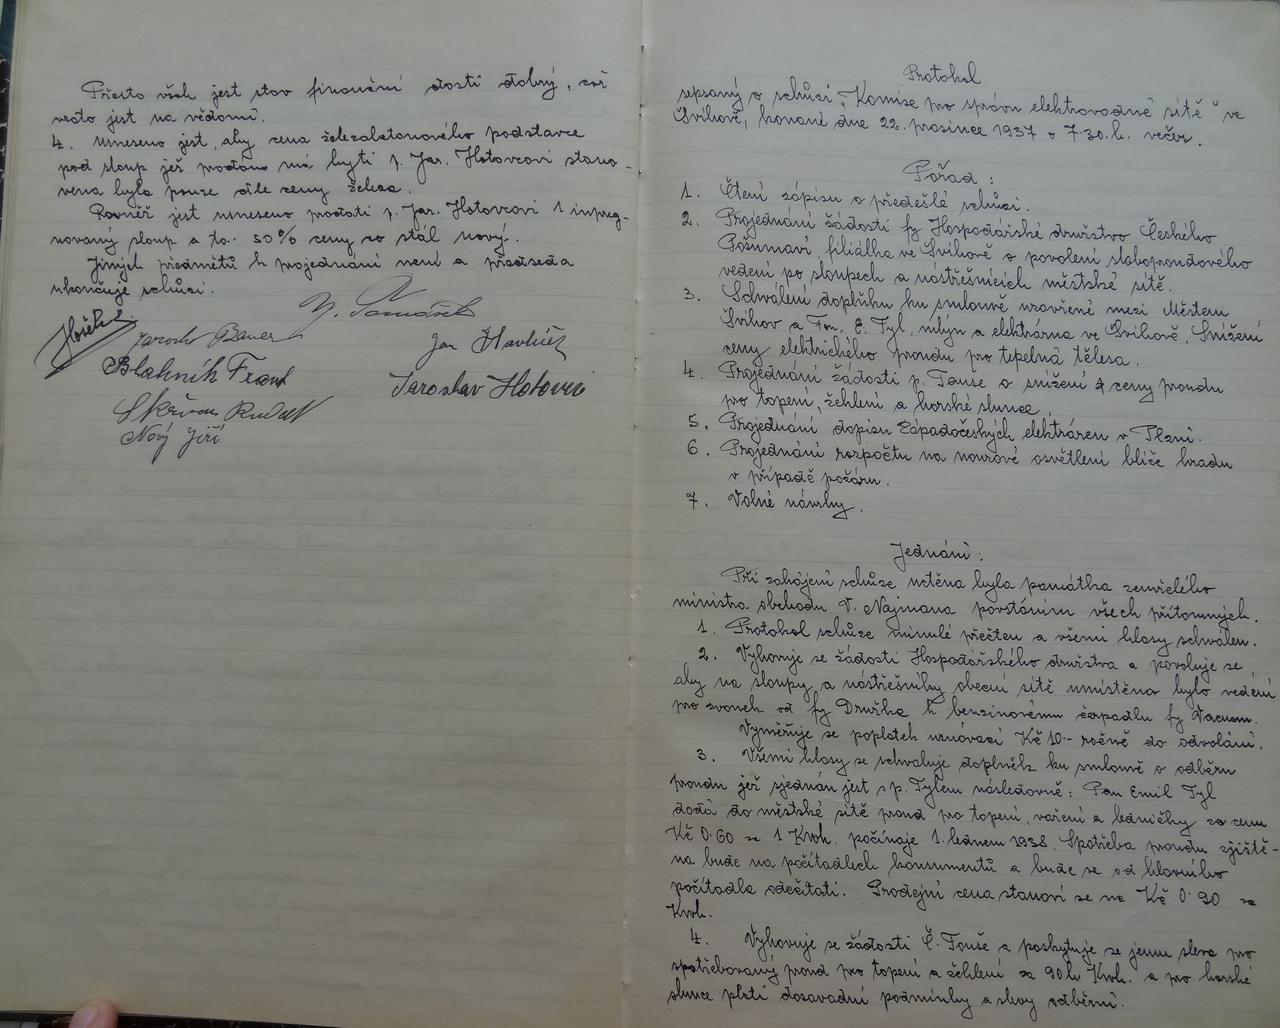 Přesto všek jest stav finanční dosti dobrý, což
vzato jest na vědomí.
4. Usneseno jest, aby cena železobetonového podstavce
pod sloup jež prodán má býti p. Jar. Hotovcovi stano-
vena byla pouze dle ceny želza.
Rovněž jest usneseno prodati p. Jar. Hotovcovi 1 impreg-
novaný sloup a to 50% ceny co stál nový.
Jiných předmětů k projednání není a předseda
ukončuje schůzi.
Jaroslav Bauer
Jan Havlíček
Blahník Frant
Jaroslav Hotovec
Rudolf
Nový Jiří
Protokol
sepsaný o schůzi „Komise pro správu elektrovodné sítě" ve
Švihově, konané dne 22. prosince 1937 o 7·30.h. večer.
Pořad :
1. Čtení zápisu o předešlé schůzi.
2. Projednání žádosti fy Hospodářské družstvo Českého
Pošumaví filiálka ve Švihově o povolení slaboproudového
vedení po sloupech a nástřešnících městské sítě.
3. Schválení doplňku ku smlouvě uzavřené mezi Městem
Švihov a Fou. E. Tyl, mlýn a elektrárna ve Švihově. Snížení
ceny elektrického proudu pro tepelná tělesa.
4. Projednání žádosti p. Touse o snížení ceny proudu
pro topení, žehlení a horské slunce.
5. Projednání dopisu Západočeských elektráren v Plzni.
6. Projednání rozpočtu na nouzové osvětlení blíže hradu
v případě požáru.
7. Volné návrhy.
Jednání :
Při zahájení schůze uctěna byla památka zemřelého
ministra obchodu V. Najmana povstáním všech přítomných.
1. Protokol schůze minulé přečten a všemi hlasy schválen.
2. Vyhovuje se žádosti Hospodářského družstva a povoluje se,
aby na sloupy a nástřešníky obecní sítě umístěno bylo vedení
pro zvonek od fy Družba k benzinovému čerpadlu fy Vacuum.
Vyměřuje se poplatek uznávací Kč 10·- ročně do odvolání.
3. Všemi hlasy se schvaluje doplněk ku smlouvě o odběru
proudu jež sjednán jest s p. Tylem následovně: Pan Emil Tyl
dodá do městské sítě proud pro topení, vaření a ledničky za cenu
Kč 0·60 za 1 Kwh. počínaje 1. lednem 1938. Spotřeba proudu zjiště-
na bude na počítadlech konsumentů a bude se od hlavního
počítadla odečítati. Prodejní cena stanoví se na Kč 0·90 za
Kwh.
4. Vyhovuje se žádosti Č. Touše a poskytuje se jemu sleva pro
spotřebovaný proud pro topení a žehlení za 90 h Kwh. a pro horské
slunce platí dosavadní podmínky a slevy odběrní.